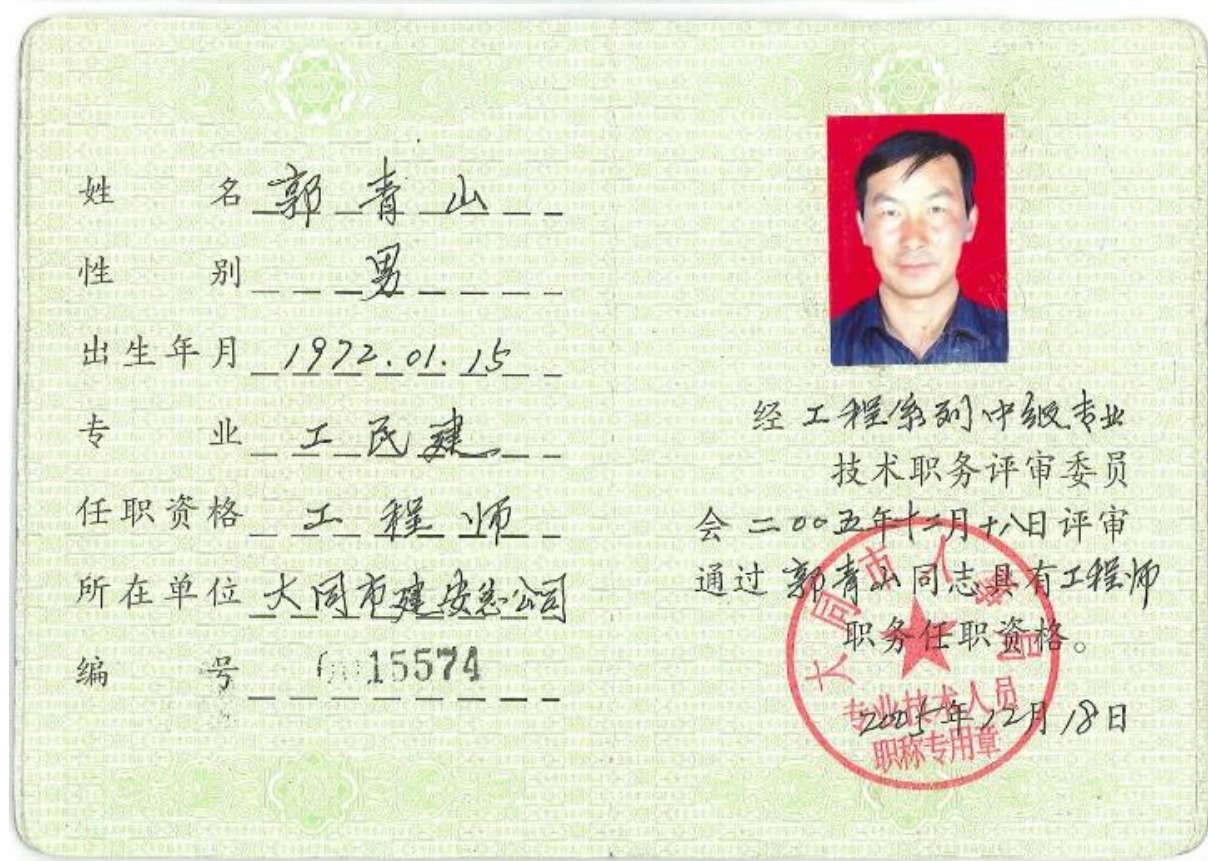 姓 名 郭青山
性 别 男
出生年月 1972.01.15
专 业 工民建
任职资格 工程师
所在单位 大同市建安总公司
编 号 15574
经工程系列中级专业
技术职务评审委员
会二00五年十二月十八日评审
通过郭青山同志具有工程师
职务任职资格。
2005年12月18日
大同市人事局
专业技术人员
职称专用章